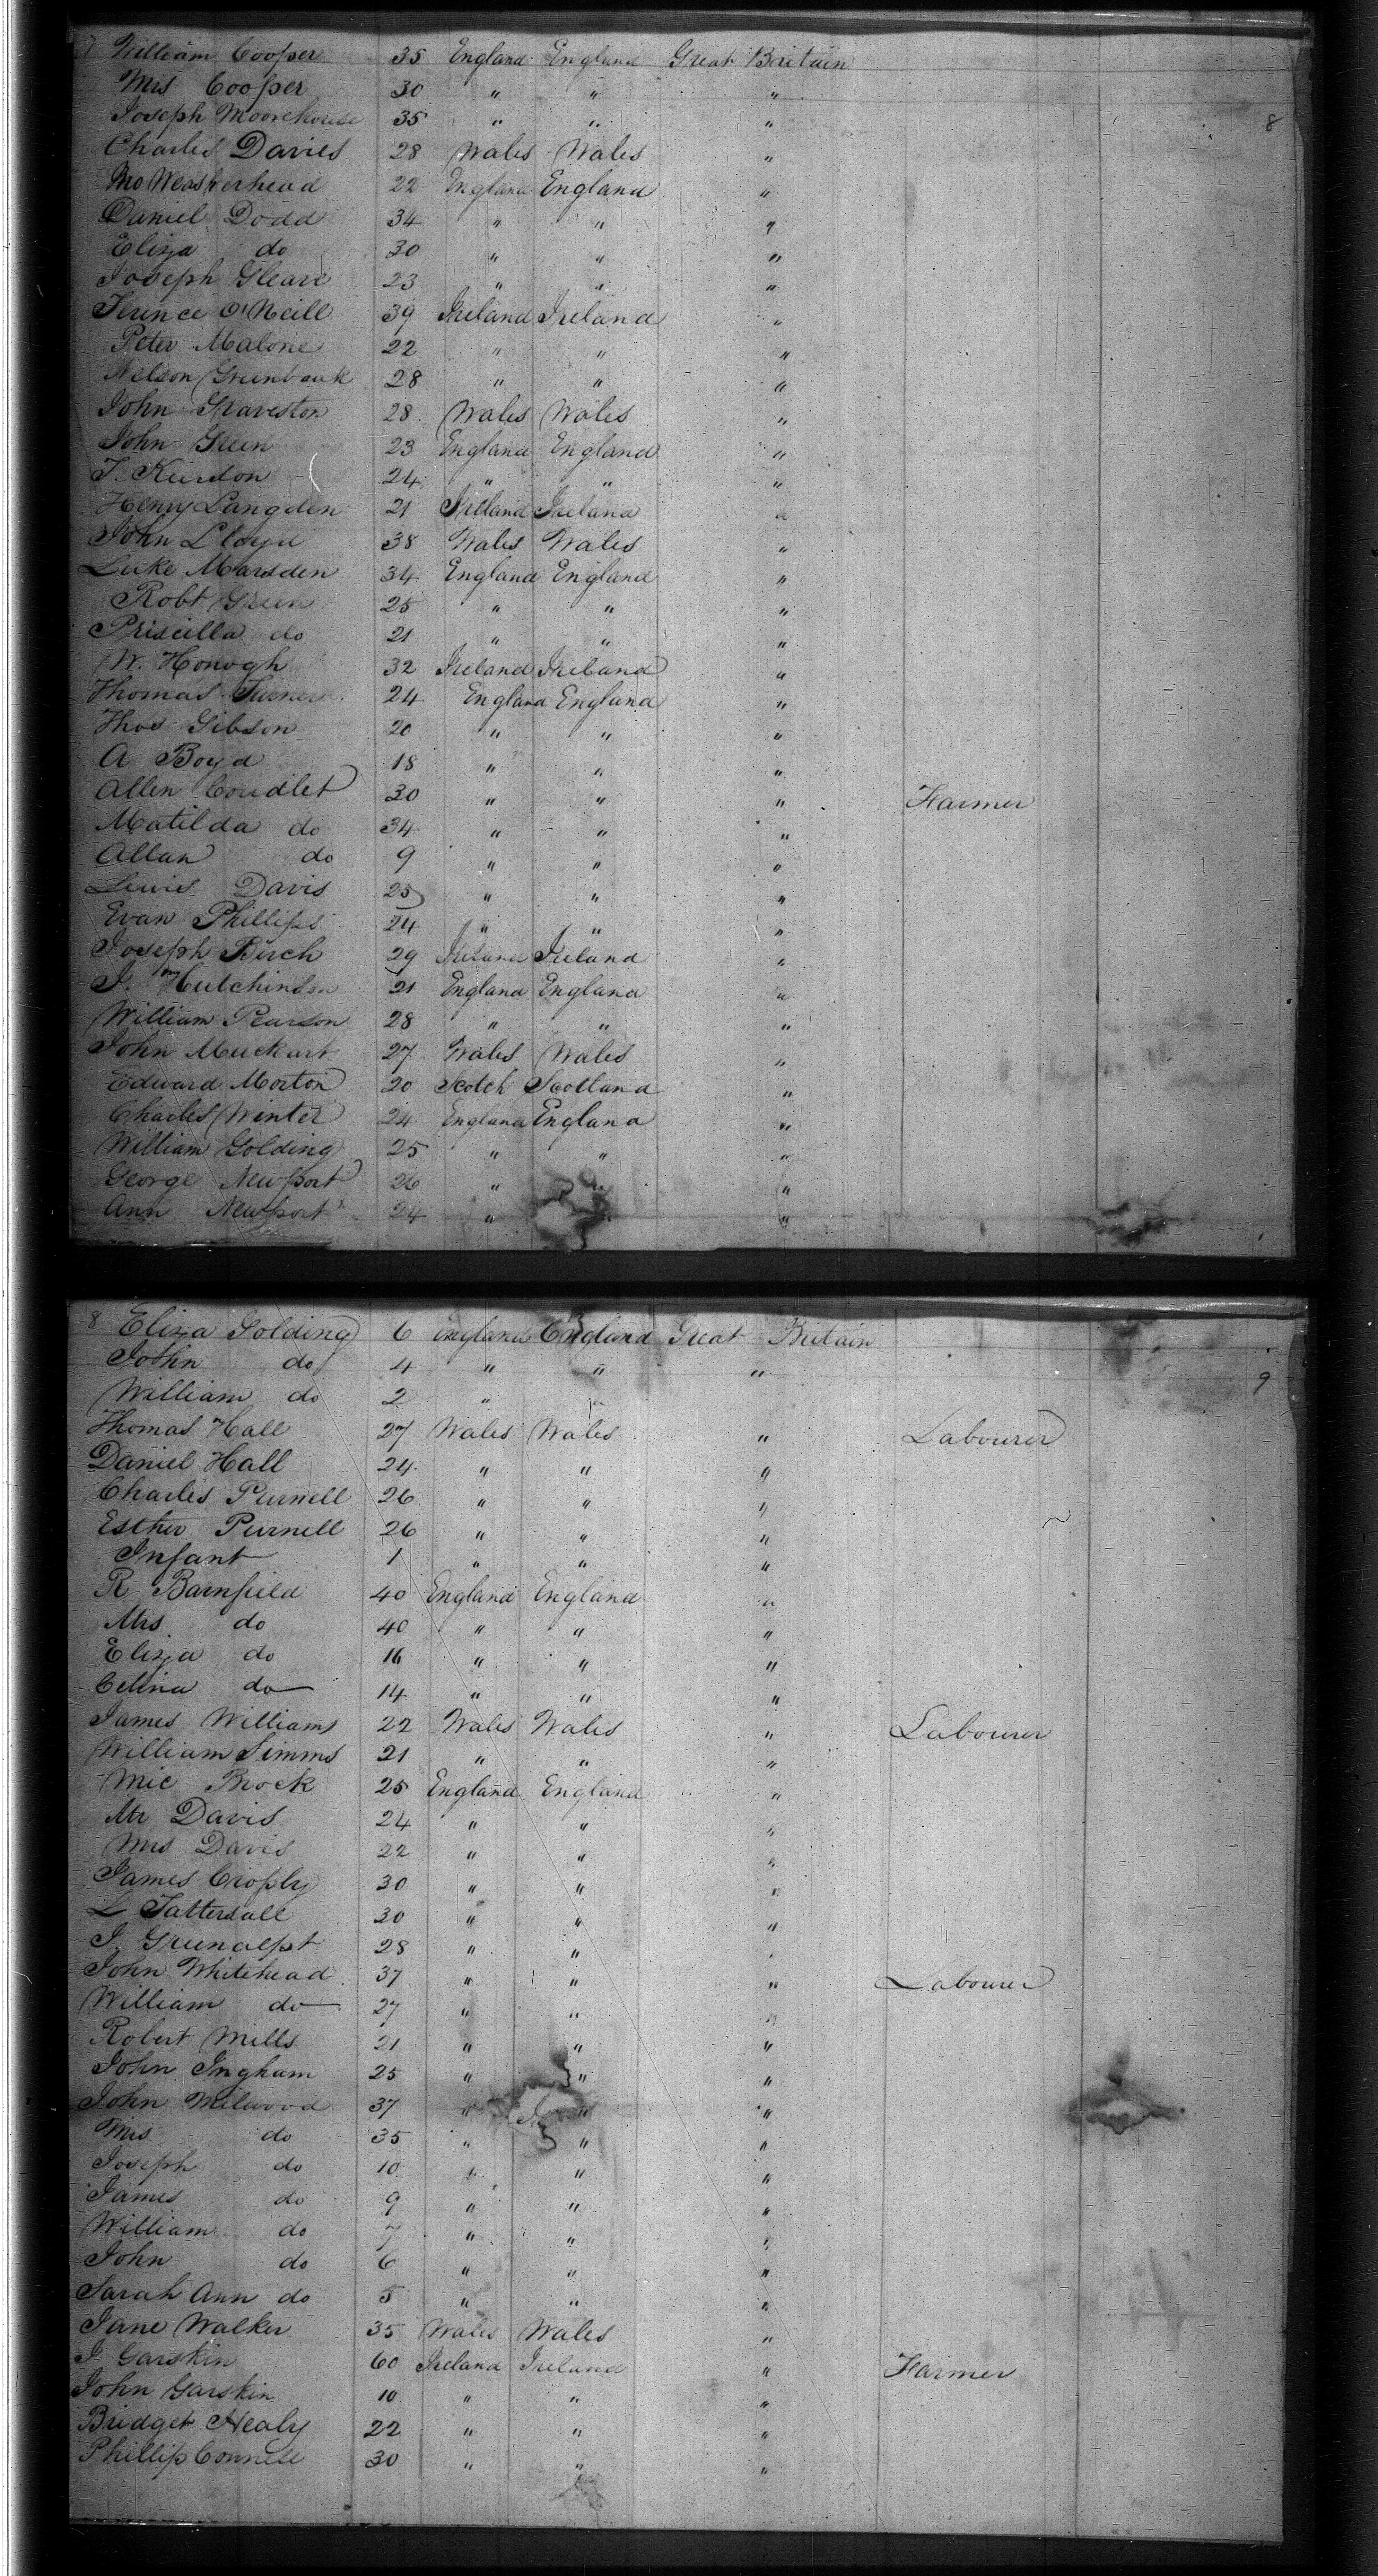 7 William Cooper 35 England England Great Britain
Mrs Cooper 30 " " "
Joseph Moorehouse 35 " " " 8
Charles Davies 28 Wales Wales "
22 England England "
Daniel Dodd 34 " " "
Eliza do 30 " " "
Joseph Gleave 23 " " "
Terince O'Neill 39 Ireland Ireland "
Peter Malone 22 " " "
Nelson Greenbank 28 " " "
John Graveston 28 Wales Wales "
John Green 23 England England "
24 " " "
Henry Langden 21 Ireland Ireland "
John Lloyd 38 Wales Wales "
Luke Marsden 34 England England "
Robt Green 25 " " "
Priscilla do 21 " " "
W. Honogh 32 Ireland Ireland "
Thomas Turner 24 England England "
Thos Gibson 20 " " "
A Boyd 18 " " "
Allen Coudlet 30 " " " Farmer
Matilda do 34 " " "
Allan do 9 " " "
Lewis Davis 25 " " "
Evan Phillips 24 " " "
Joseph Birch 29 Ireland Ireland "
J. Hutchinson 21 England England "
William Pearson 28 " " "
John Muckart 27 Wales Wales "
Edward Morton 20 Scotch Scotland "
Charles Winter 24 England England "
William Golding 25 " " "
George Newport 26 " " "
Ann Newport 24 " " "
8 Eliza Golding 6 England England Great Britain
John do 4 " " "
William do 2 " " 9
Thomas Hall 27 Wales Wales " Labourer
Daniel Hall 24 " " "
Charles Purnell 26 " " "
Esther Purnell 26 " " "
Infant 1 " " "
R Barnfield 40 England England "
Mrs do 40 " " "
Eliza do 16 " " "
Celina do 14 " " "
James Williams 22 Wales Wales " Labourer
William Simms 21 " " "
Mic Brock 25 England England "
Mr Davis 24 " " "
Mrs Davis 22 " " "
James Croply 30 " " "
L Tattersall 30 " " "
J 28 " " "
John Whitehead 37 " " " Labourer
William do 27 " " "
Robert Mills 21 " " "
John Ingham 25 " " "
John Milwood 37 " " "
Mrs do 35 " " "
Joseph do 10 " " "
James do 9 " " "
William do 7 " " "
John do 6 " " "
Sarah Ann do 5 " " "
Jane Walker 35 Wales Wales "
J Garskin 60 Ireland Ireland " Farmer
John Garskin 10 " " "
Bridget Healy 22 " " "
Phillip Connell 30 " " "